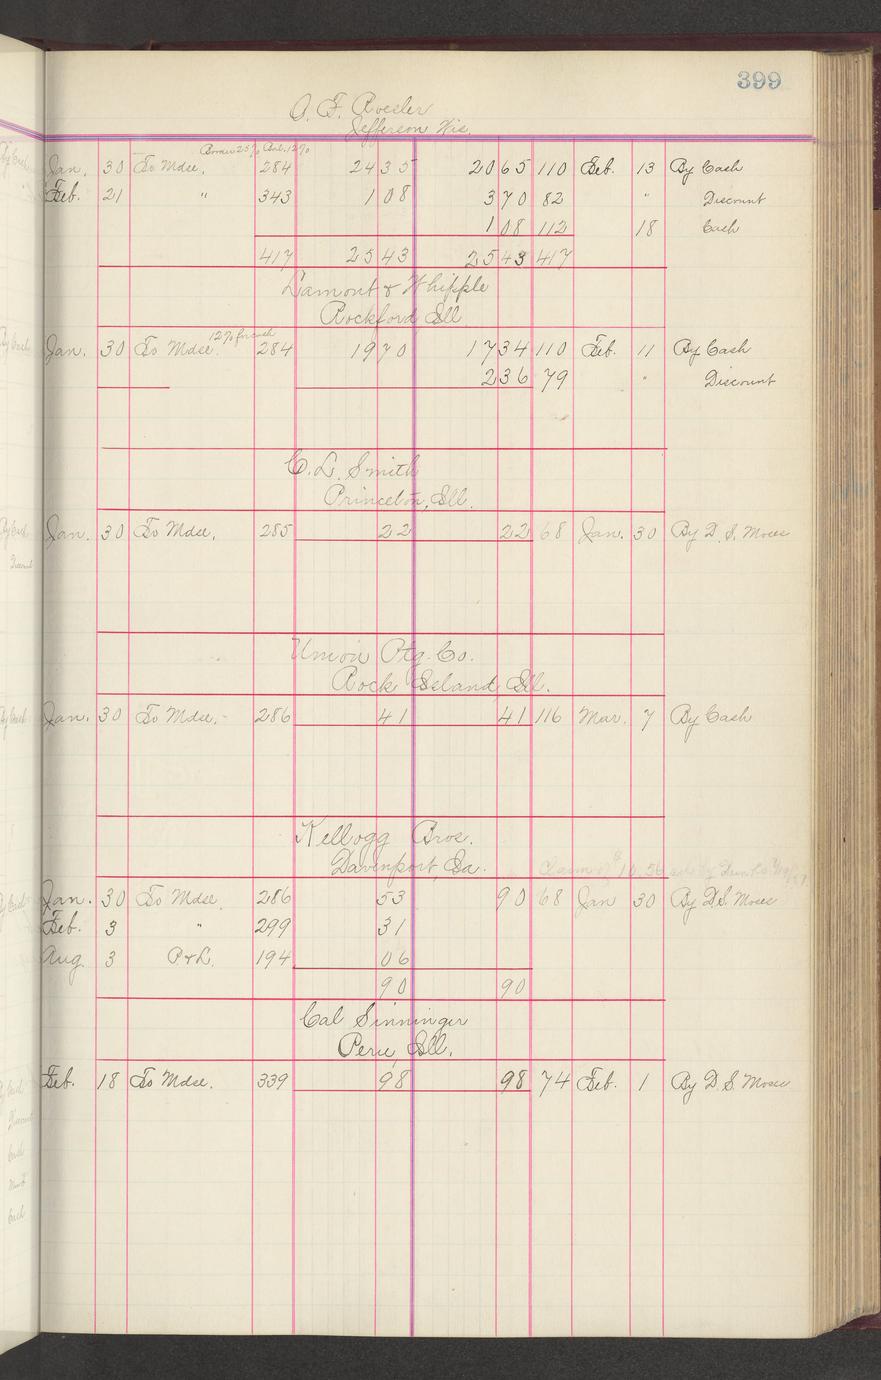 399
A. F. Roesler
Jefferson Wis.
Jan. 30 To Mdse. 284 2435 2065 110 Feb. 13 By Cash
Feb. 21 " 343 108 370 82 " Discount
108 112 18 Cash
417 2543 2543 417
Lamont & Whipple
Rockford Ill
12% for cash
Jan. 30 To Mdse. 284 1970 1734 110 Feb. 11 By Cash
236 79 " Discount
C. L. Smith
Princeton, Ill.
Jan. 30 To Mdse. 285 22 22 68 Jan. 30 By D. S. Moses
Union Ptg. Co.
Rock Island, Ill.
Jan. 30 To Mdse. 286 41 41 116 Mar. 7 By Cash
Kellogg Bros.
Davenport, Ia.
Claim of $10.56
Jan. 30 To Mdse. 286 53 90 68 Jan 30 By D. S. Moses
Feb. 3 " 299 31
Aug. 3 P & L. 194 06
90 90
Cal Sinninger
Peru, Ill.
Feb. 18 To Mdse. 339 98 98 74 Feb. 1 By D. S. Moses